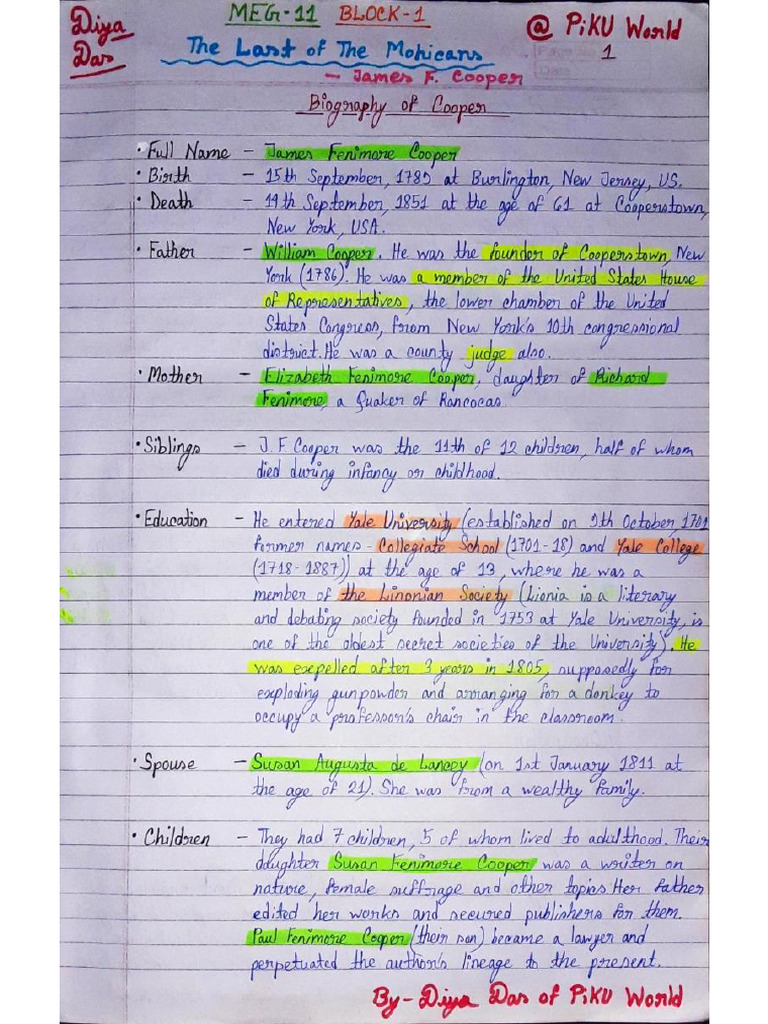 Diya Das
MEG-11 BLOCK-1
@ PiKU World
1
The Last of The Mohicans
- James F. Cooper
Biography of Cooper
• Full Name - James Fenimore Cooper
• Birth - 15th September, 1789 at Burlington, New Jersey, US.
• Death - 14th September, 1851 at the age of 61 at Cooperstown,
New York, USA.
• Father - William Cooper. He was the founder of Cooperstown, New
York (1786). He was a member of the United States House
of Representatives, the lower chamber of the United
States Congress, from New York's 10th congressional
district. He was a county judge also.
• Mother - Elizabeth Fenimore Cooper, daughter of Richard
Fenimore, a Quaker of Rancocas
• Siblings - J. F Cooper was the 11th of 12 children, half of whom
died during infancy or childhood.
• Education - He entered Yale University (established on 9th October, 1701
former names - Collegiate School (1701-18) and Yale College
(1718-1887)) at the age of 13, where he was a
member of the Linonian Society (Lionia is a literary
and debating society founded in 1753 at Yale University, is
one of the oldest secret societies of the University). He
was expelled after 3 years in 1805, supposedly for
exploding gunpowder and arranging for a donkey to
occupy a professor's chair in the classroom.
• Spouse - Susan Augusta de Lancey (on 1st January 1811 at
the age of 21). She was from a wealthy family.
• Children - They had 7 children, 5 of whom lived to adulthood. Their
daughter Susan Fenimore Cooper was a writer on
nature, female suffrage and other topics. Her father
edited her works and secured publishers for them.
Paul Fenimore Cooper (their son) became a lawyer and
perpetuated the author's lineage to the present.
By - Diya Das of PiKU World